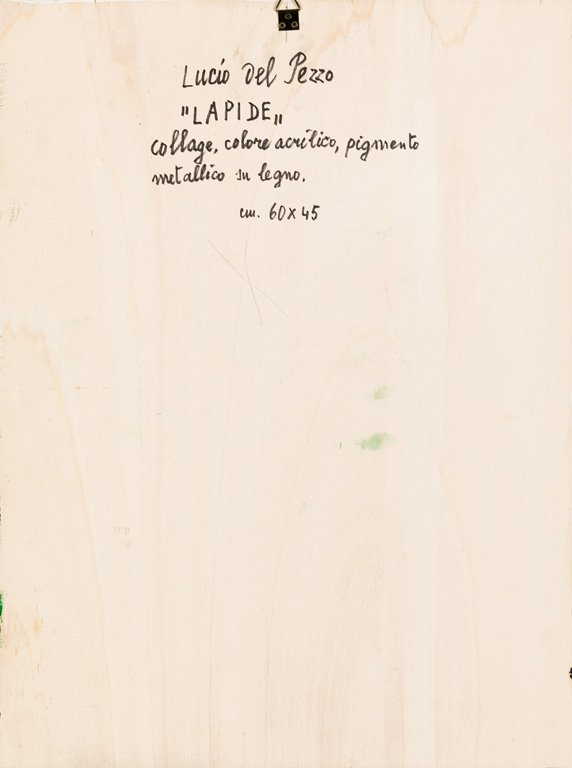 Lucio Del Pezzo
"LAPIDE"
collage, colore acrilico, pigmento
metallico su legno.
cm. 60x45